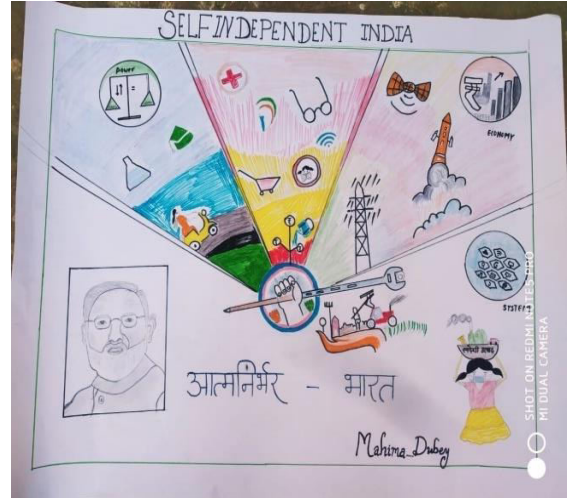 SELF INDEPENDENT INDIA
POWER
ECONOMY
SYSTEM
आत्मनिर्भर - भारत
Mahima_Dubey
SHOT ON REDMI NOTE 5 PRO
MI DUAL CAMERA